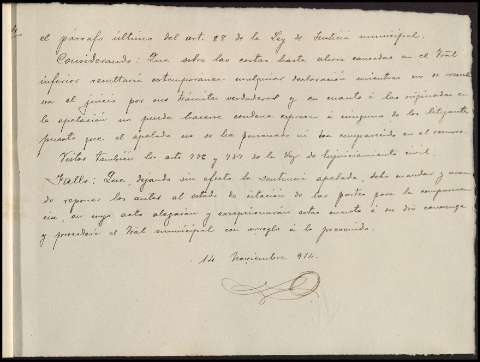 el párrafo último del art. 28 de la Ley de Justicia municipal.
Considerando: Que sobre las costas hasta ahora causadas en el Tral
inferior resultaria extemporanea cualquier declaración mientras no se
va el juicio por sus trámites verdaderos y en cuanto á las originadas en
la apelación no puede hacerse condena expresa á ninguno de los litigantes
puesto que el apelado no se ha personado ni ha comparecido en el recurso
Vistos también los arts y 737 de la Ley de Enjuiciamiento civil.
Fallo: Que, dejando sin efecto la sentencia apelada, debo mandar y man-
do reponer los autos al estado de citación de las partes para la comparecen-
cia, en cuyo acto alegarán y exepcionarán estas cuanto á su dro convenga
y procederá el Tral municipal con arreglo á lo prevenido.
14 Noviembre 914.